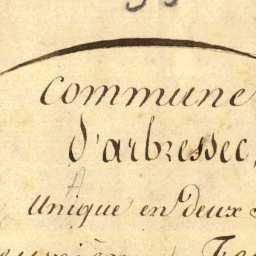 Commune
d'arbressec,
Unique en deux